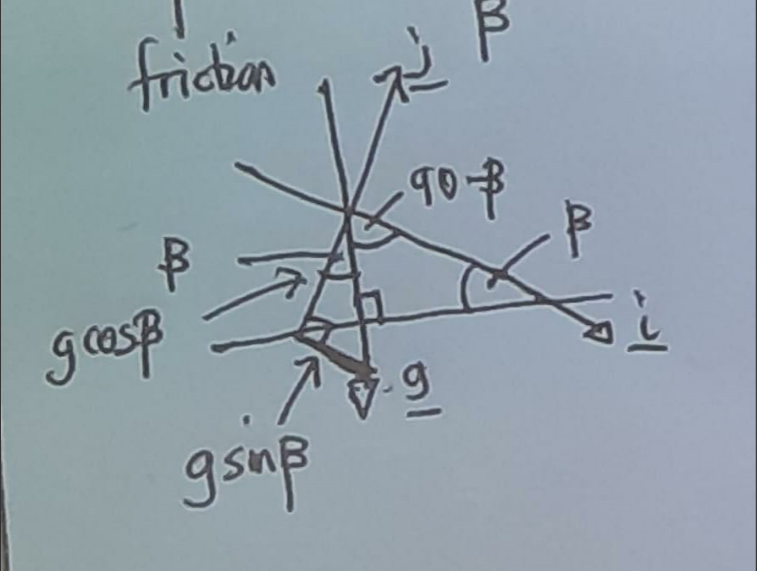 friction
j
β
90-β
β
β
g cosβ
i
g
g sinβ